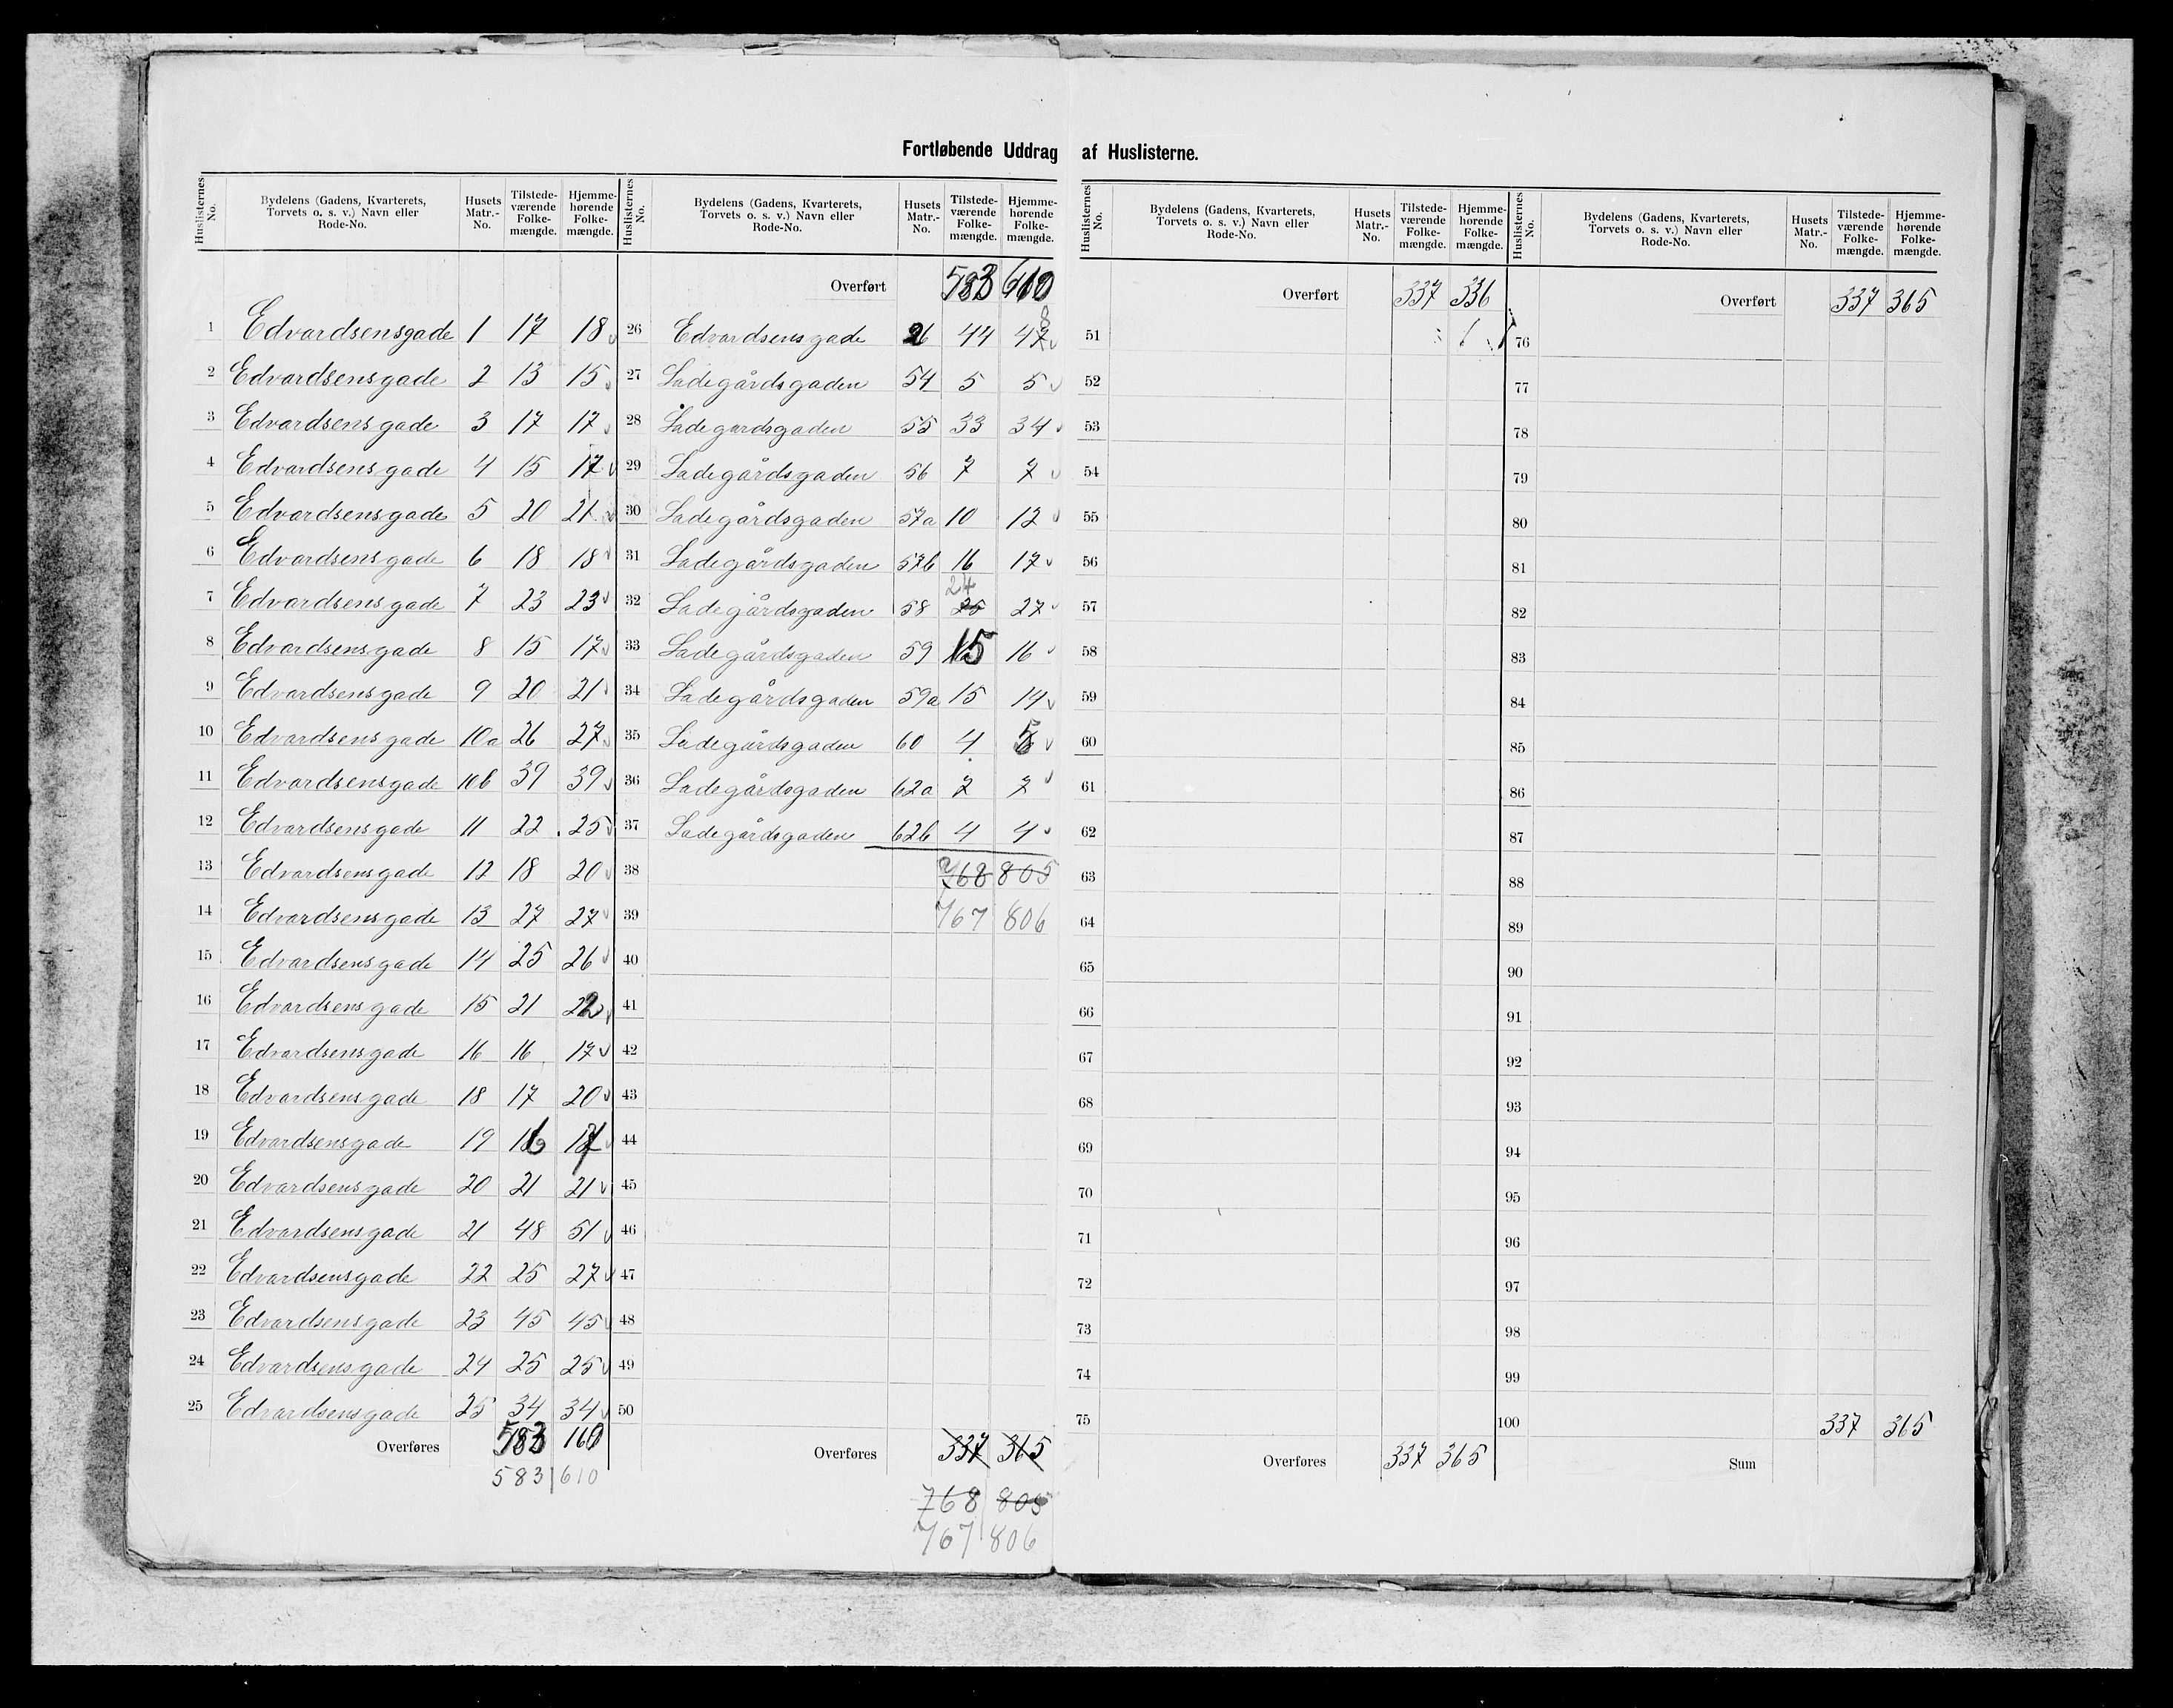 Fortløbende Uddrag af Huslisterne.
Huslisternes No. Bydelens (Gadens, Kvarterets, Torvets o. s. v.) Navn eller Rode-No. Husets Matr.-No. Tilstede-værende Folke-mængde. Hjemme-hørende Folke-mængde.
1 Edvardsensgade 1 17 18
2 Edvardsensgade 2 13 15
3 Edvardsensgade 3 17 17
4 Edvardsensgade 4 15 17
5 Edvardsensgade 5 20 21
6 Edvardsensgade 6 18 18
7 Edvardsensgade 7 23 23
8 Edvardsensgade 8 15 17
9 Edvardsensgade 9 20 21
10 Edvardsensgade 10a 26 27
11 Edvardsensgade 10b 39 39
12 Edvardsensgade 11 22 25
13 Edvardsensgade 12 18 20
14 Edvardsensgade 13 27 27
15 Edvardsensgade 14 25 26
16 Edvardsensgade 15 21 22
17 Edvardsensgade 16 16 17
18 Edvardsensgade 18 17 20
19 Edvardsensgade 19 16 17
20 Edvardsensgade 20 21 21
21 Edvardsensgade 21 48 51
22 Edvardsensgade 22 25 27
23 Edvardsensgade 23 45 45
24 Edvardsensgade 24 25 25
25 Edvardsensgade 25 34 34
Overføres 583 610
583 610
Huslisternes No. Bydelens (Gadens, Kvarterets, Torvets o. s. v.) Navn eller Rode-No. Husets Matr.-No. Tilstede-værende Folke-mængde. Hjemme-hørende Folke-mængde.
Overført 583 610
8
26 Edvardsensgade 26 44 47
27 Ladegårdsgaden 54 5 5
28 Ladegårdsgaden 55 33 34
29 Ladegårdsgaden 56 7 7
30 Ladegårdsgaden 57a 10 12
31 Ladegårdsgaden 57b 16 17
24
32 Ladegårdsgaden 58 25 27
33 Ladegårdsgaden 59 15 16
34 Ladegårdsgaden 59a 15 14
35 Ladegårdsgaden 60 4 5
36 Ladegårdsgaden 62a 7 7
37 Ladegårdsgaden 62b 4 4
38 768 805
39 767 806
40
41
42
43
44
45
46
47
48
49
50
Overføres 337 365
768 805
767 806
Huslisternes No. Bydelens (Gadens, Kvarterets, Torvets o. s. v.) Navn eller Rode-No. Husets Matr.-No. Tilstede-værende Folke-mængde. Hjemme-hørende Folke-mængde.
Overført 337 336
51
52
53
54
55
56
57
58
59
60
61
62
63
64
65
66
67
68
69
70
71
72
73
74
75
Overføres 337 365
Huslisternes No. Bydelens (Gadens, Kvarterets, Torvets o. s. v.) Navn eller Rode-No. Husets Matr.-No. Tilstede-værende Folke-mængde. Hjemme-hørende Folke-mængde.
Overført 337 365
76
77
78
79
80
81
82
83
84
85
86
87
88
89
90
91
92
93
94
95
96
97
98
99
100 337 365
Sum